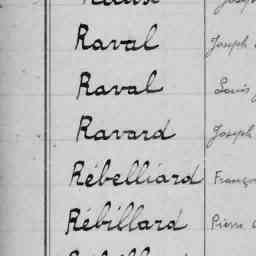 Raval Joseph
Raval Louis
Ravard Joseph
Rébelliard Franço
Rébillard Pierre